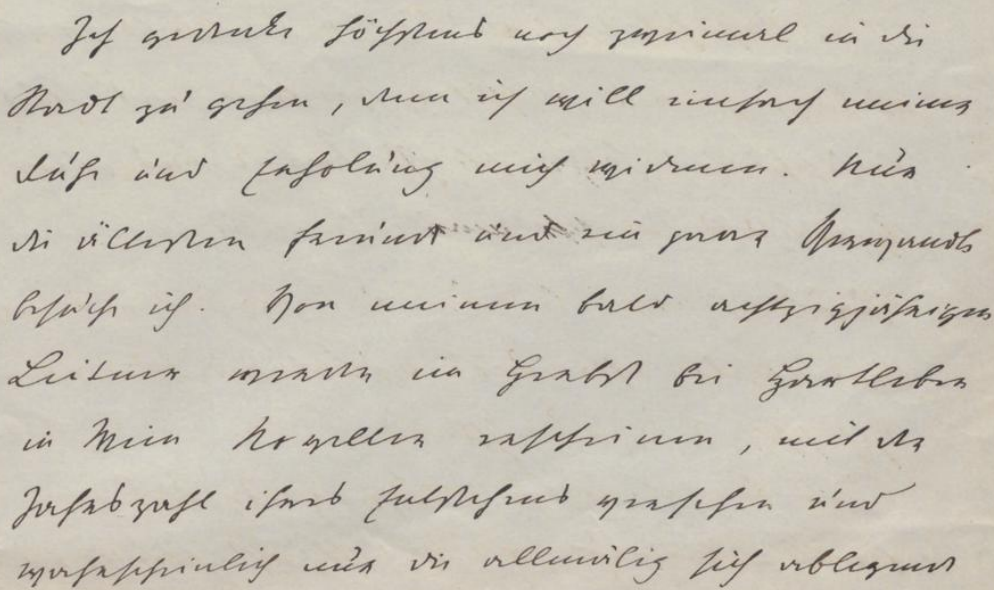 Ich gedenke höchstens noch zweimal in die
Stadt zu gehen, denn ich will einfach meiner
Ruhe und Erholung mich widmen. Nur
die ältesten Freunde und ein paar Verwandte
besuche ich. Von meinem bald achtzigjährigen
Leitner werden im Herbst bei Hartleben
in Wien Novellen erscheinen, mit der
Jahreszahl ihres Entstehens versehen und
wahrscheinlich nur die allmälig sich